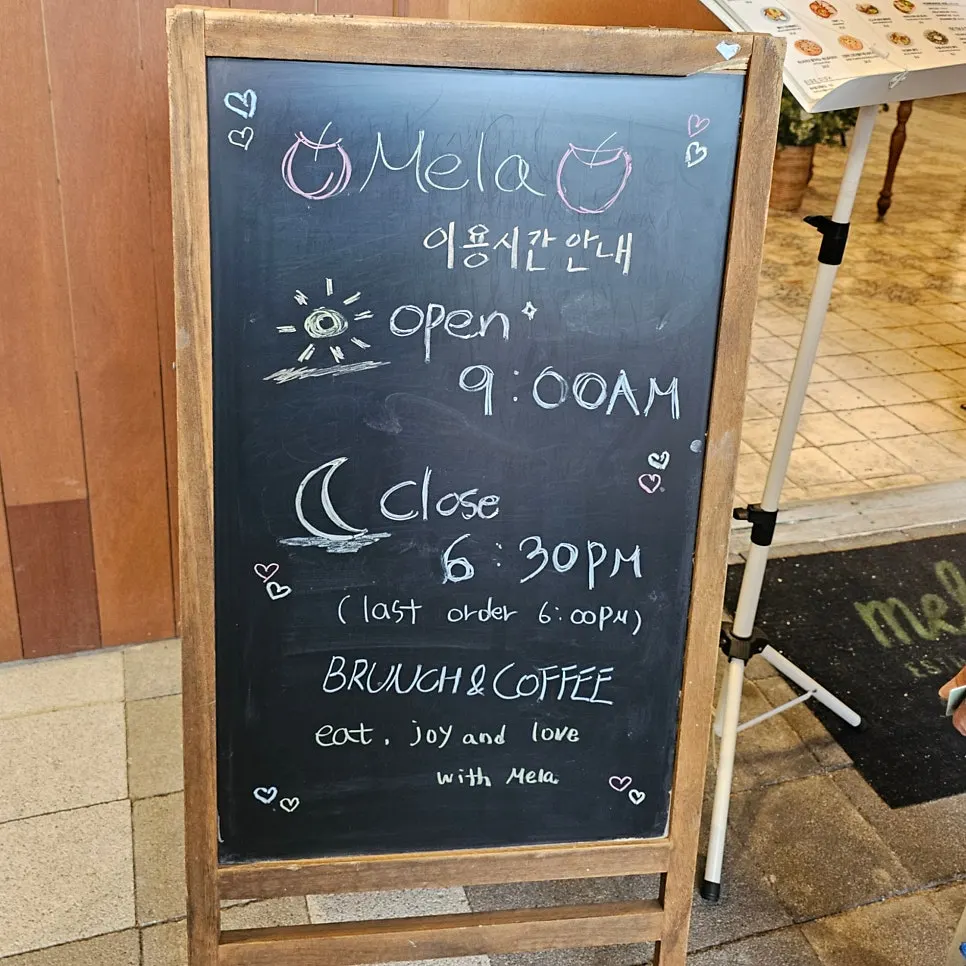 Mela
이용시간 안내
open
9:00AM
Close
6:30PM
(last order 6:00PM)
BRUNCH & COFFEE
eat, joy and love
with Mela.